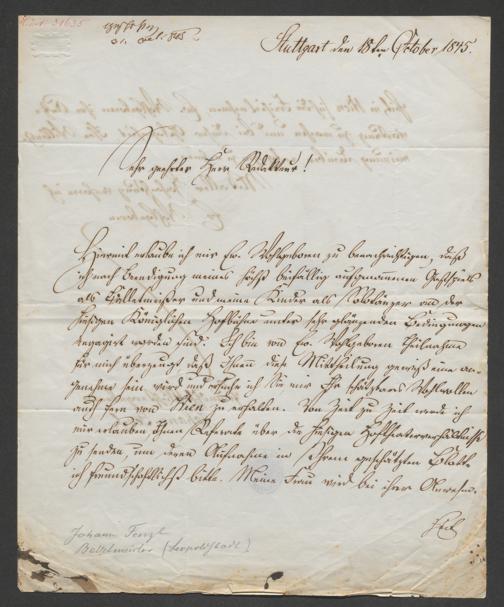 Stuttgart den 18ten October 1845.
Sehr geehrter Herr Redakteur!
Hiermit erlaube ich mir Ew. Wohlgeboren zu benachrichtigen, daß
ich nach Beendigung meines höchst beifällig aufgenommenen Gastspiels
als Balletmeister und meine Kinder als Solotänzer an der
hiesigen Königlichen Hofbühne unter sehr glänzenden Bedingungen
engagirt worden sind. Ich bin von Ew. Wohlgeboren Theilnahme
für mich überzeugt daß Ihnen diese Mittheilung gewiß eine an-
genehme sein wird und ersuche ich Sie mir Ihr schätzbares Wohlwollen
auch fern von Wien zu erhalten. Von Zeit zu Zeit werde ich
mir erlauben Ihnen Referate über die hiesigen Hoftheaterverhältnisse
zu senden, um deren Aufnahme in Ihrem geschätzten Blatte
ich freundschaftlichst bitte. Meine Frau wird bei ihrer Anwesen-
Johann Fenzl
Balletmeister (Leopoldstadt)